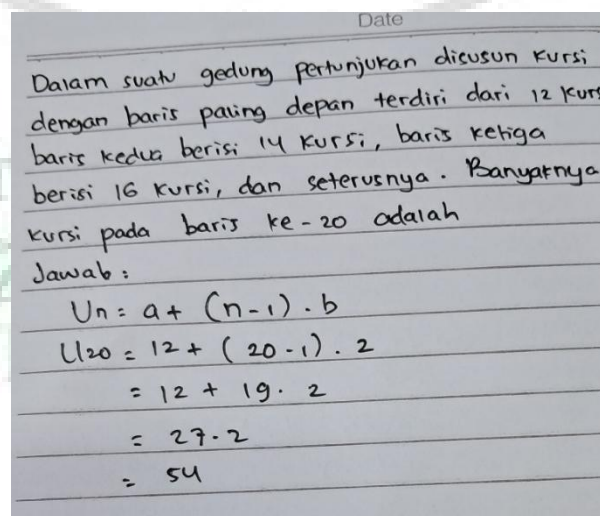 Date
Dalam suatu gedung pertunjukan disusun kursi
dengan baris paling depan terdiri dari 12 kurs
baris kedua berisi 14 kursi, baris ketiga
berisi 16 kursi, dan seterusnya. Banyaknya
kursi pada baris ke-20 adalah
Jawab :
Un = a + (n-1) . b
U20 = 12 + (20-1) . 2
= 12 + 19. 2
= 27.2
= 54